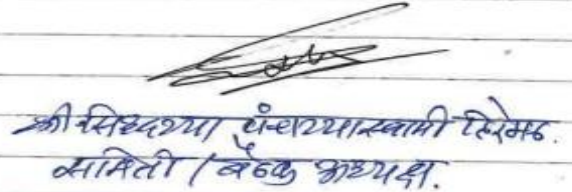 श्री सिध्दय्या पंचय्यास्वामी हिरेमठ.
समिती / बैठक अध्यक्ष.